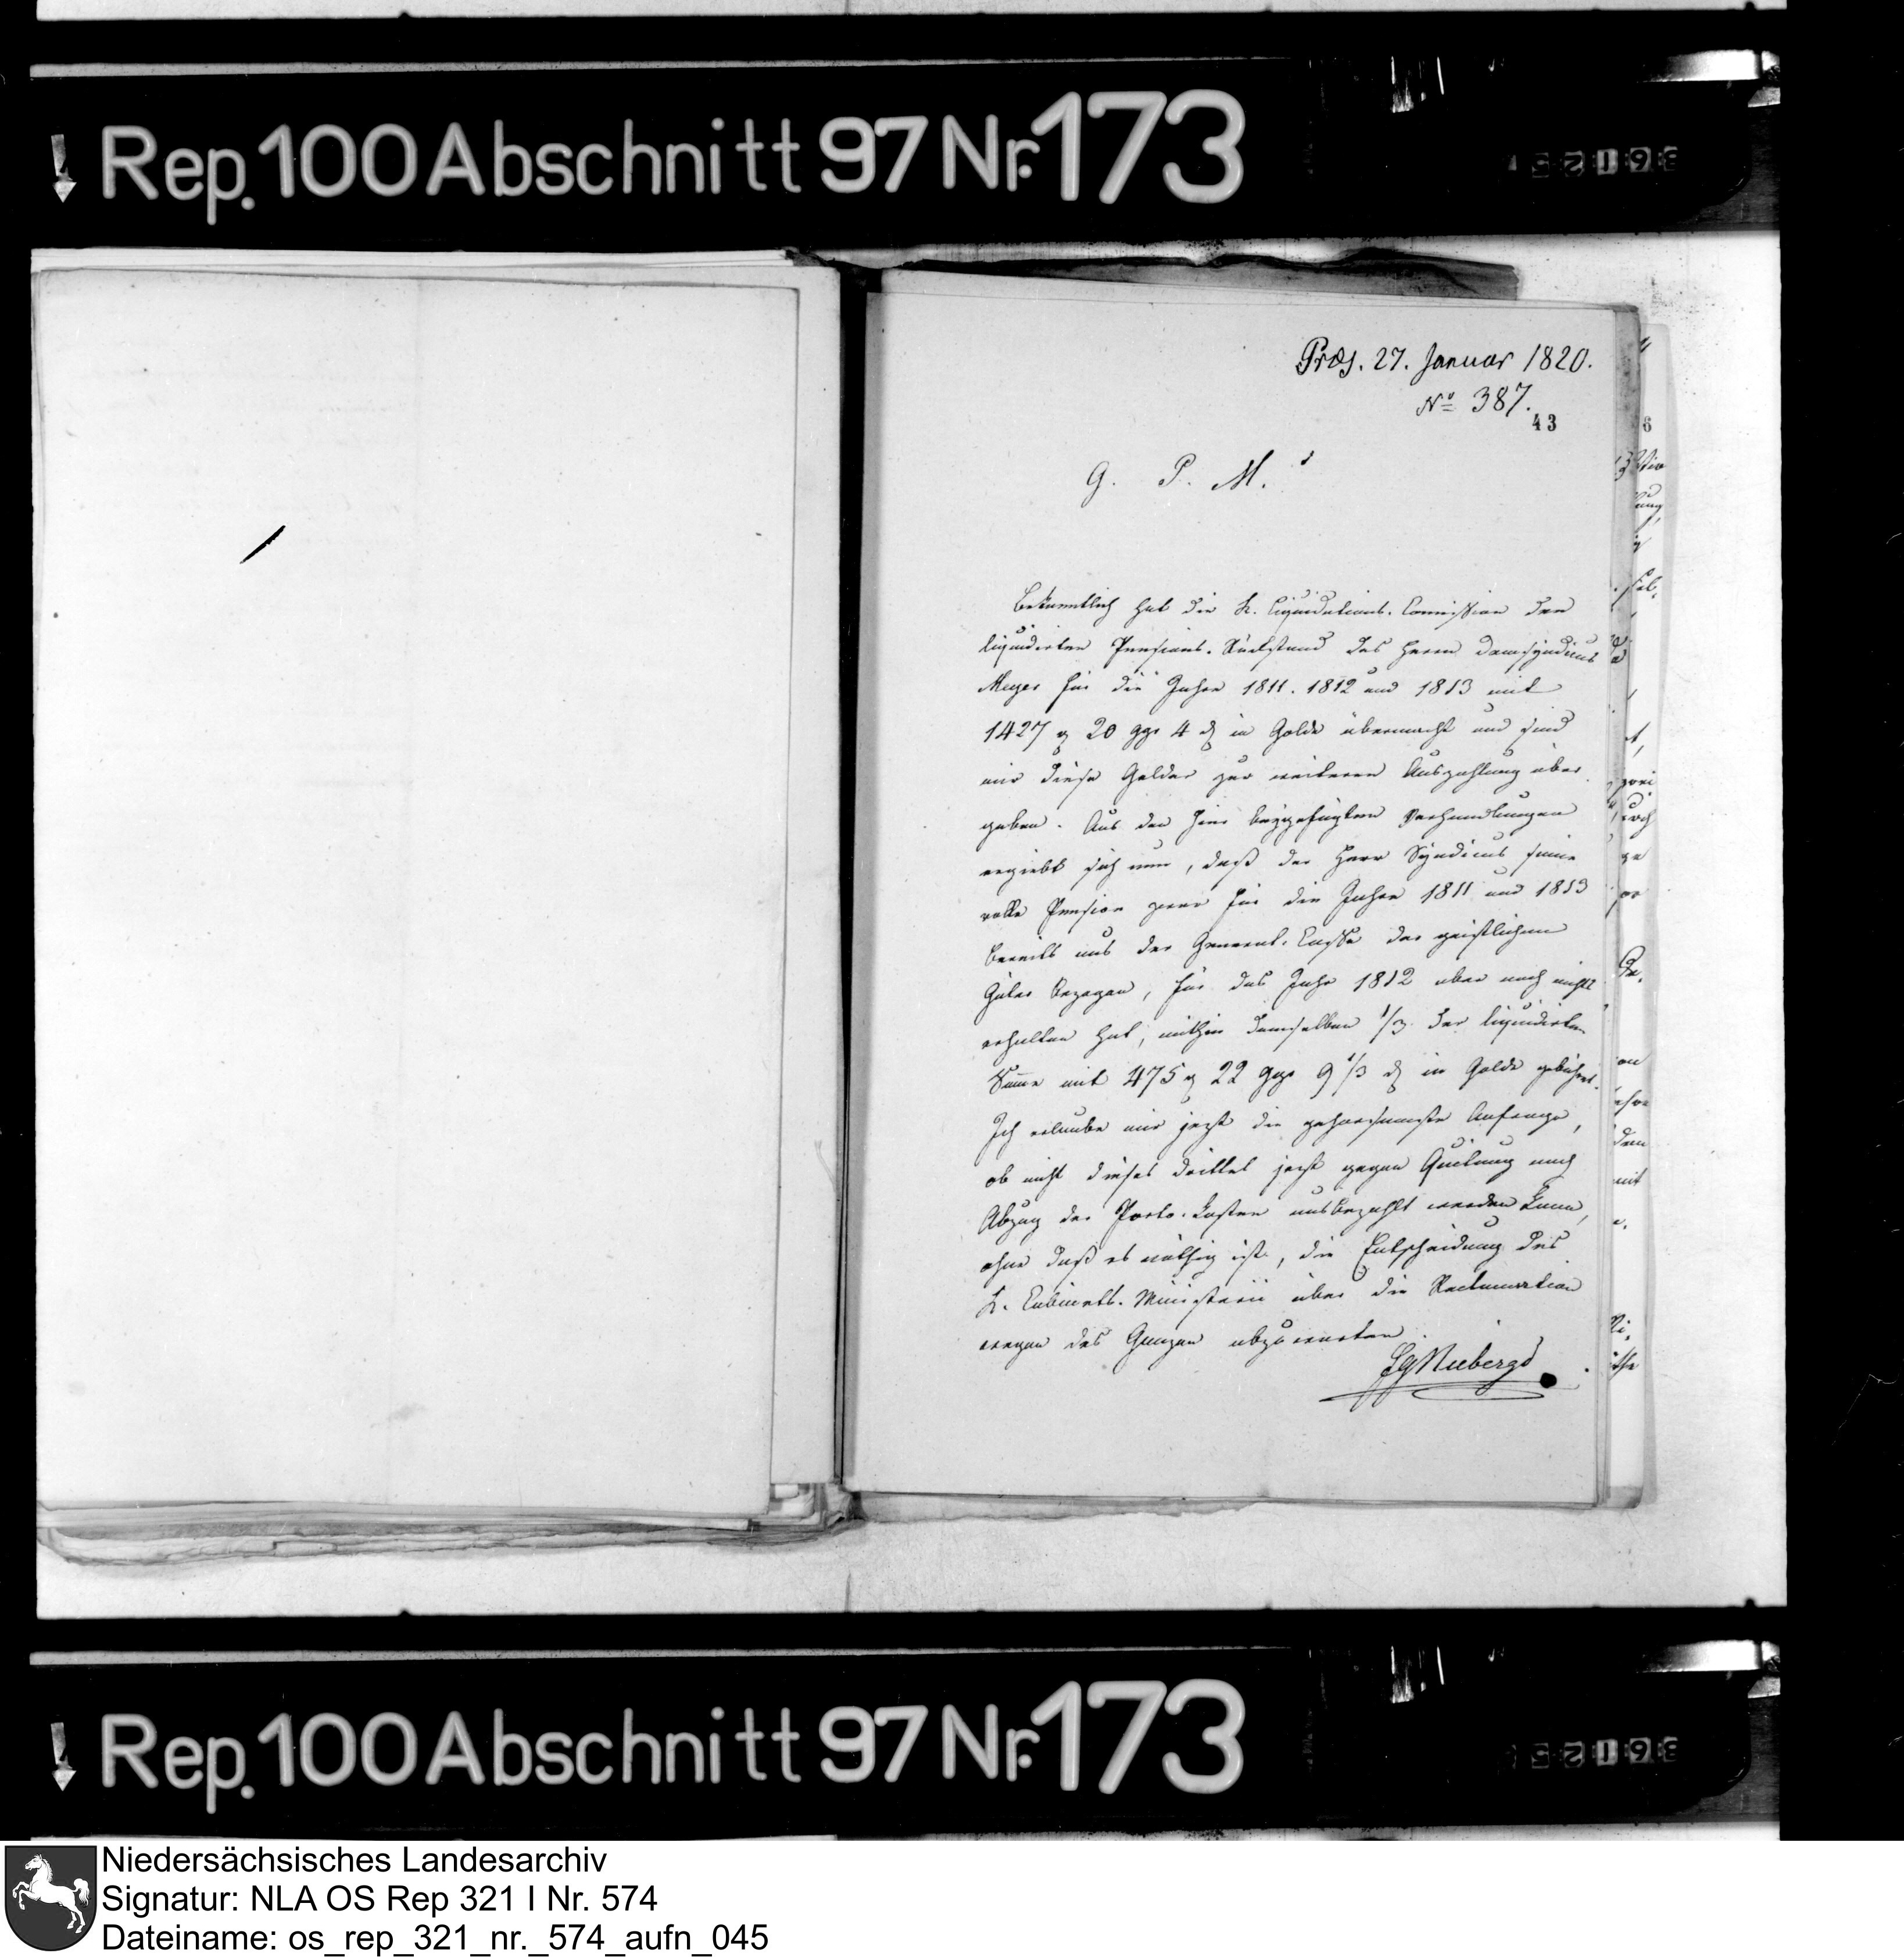 Rep. 100 Abschnitt 97 Nr. 173
Präs. 27. Januar 1820.
No 387.
43
G. P. M.
Bekanntlich hat die K. Liquidations-Commission den
liquidirten Pensions-Rückstand des Herrn Domsyndicus
Meyer für die Jahre 1811. 1812 und 1813 mit
1427 rt 20 ggr 4 d in Golde übermacht und sind
mir diese Gelder zur weiteren Auszahlung über
geben. Aus den hier beygefügten Verhandlungen
ergiebt sich nun, daß der Herr Syndicus seine
volle Pension zwar für die Jahre 1811 und 1813
bereits aus der General-Casse der geistlichen
Güter bezogen, für das Jahr 1812 aber noch nichts
erhalten hat, mithin demselben 1/3 der liquidirten
Summe mit 475 rt 22 ggr 9 1/3 d in Golde gebührt.
Ich erlaube mir jezt die gehorsamste Anfrage,
ob nicht dieses Drittel jezt gegen Quitung nach
Abzug der Porto-Kosten ausbezahlt werden kann,
ohne daß es nöthig ist, die Entscheidung des
K. Cabinets-Ministerii über die Reclamation
wegen des Ganzen abzuwarten.
Rep. 100 Abschnitt 97 Nr. 173
Niedersächsisches Landesarchiv
Signatur: NLA OS Rep 321 I Nr. 574
Dateiname: os_rep_321_nr._574_aufn_045